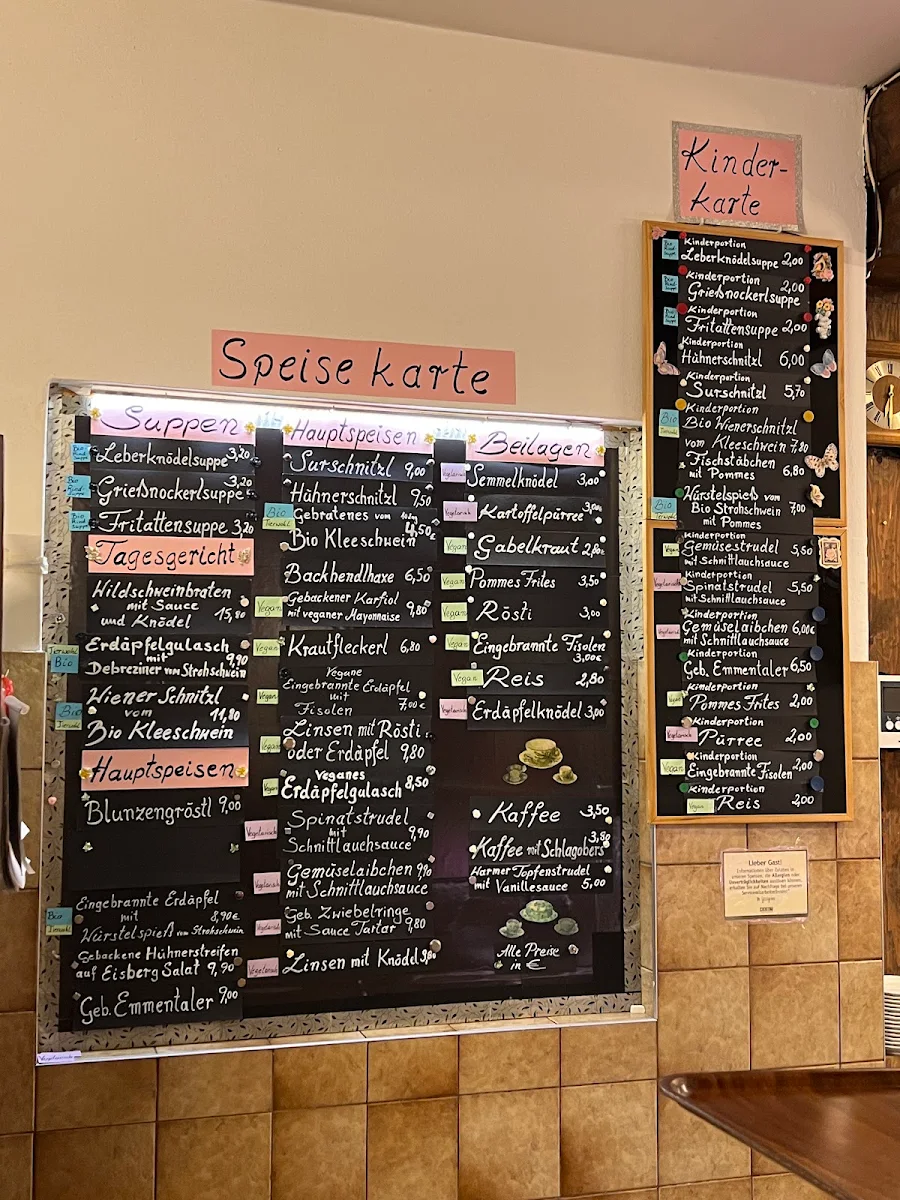 Kinder-
karte
Speisekarte
Suppen
Leberknödelsuppe 3,20
Grießnockerlsuppe 3,20
Fritattensuppe 3,20
Tagesgericht
Wildschweinbraten
mit Sauce
und Knödel 15,80
Tierwohl
Bio
Erdäpfelgulasch
mit 9,90
Debreziner vom Strohschwein
Bio
Tierwohl
Wiener Schnitzl
vom 11,80
Bio Kleeschwein
Hauptspeisen
Blunzengröstl 9,00
Bio
Tierwohl
Eingebrannte Erdäpfel
mit 8,90€
Würstelspieß vom Strohschwein
Gebackene Hühnerstreifen
auf Eisberg Salat 9,90
Geb. Emmentaler 9,00
Hauptspeisen
Surschnitzl 9,00
Hühnerschnitzl 9,50
Bio
Tierwohl
Gebratenes vom
Bio Kleeschwein
Backhendlhaxe 6,50
Vegan
Gebackener Karfiol
mit veganer Mayonnaise 9,80
Vegan
Krautfleckerl 6,80
Vegan
Vegane
Eingebrannte Erdäpfel
mit
Fisolen 7,00€
Vegan
Linsen mit Rösti
oder Erdäpfel 9,80
Vegan
Veganes
Erdäpfelgulasch 8,50
Vegetarisch
Spinatstrudel
mit 9,90
Schnittlauchsauce
Vegetarisch
Gemüselaibchen 9,90
mit Schnittlauchsauce
Vegetarisch
Geb. Zwiebelringe
mit Sauce Tartar 9,80
Vegetarisch
Linsen mit Knödel
Beilagen
Vegetarisch
Semmelknödel 3,00
Vegetarisch
Kartoffelpürree 3,00
Vegan
Gabelkraut 2,80
Vegan
Pommes Frites 3,50
Vegan
Rösti 3,00
Vegan
Eingebrannte Fisolen
3,00€
Vegan
Reis 2,80
Vegetarisch
Erdäpfelknödel 3,00
Kaffee 3,50
Kaffee mit Schlagobers 3,80
Warmer Topfenstrudel
mit Vanillesauce 5,00
Alle Preise
in €
Kinderportion
Leberknödelsuppe 2,00
Kinderportion
2,00
Grießnockerlsuppe
Kinderportion
Fritattensuppe 2,00
Kinderportion
Hühnerschnitzl 6,00
Kinderportion
Surschnitzl 5,70
Bio
Tierwohl
Kinderportion
Bio Wienerschnitzl
vom Kleeschwein 7,80
Fischstäbchen
mit Pommes 6,80
Bio
Tierwohl
Würstelspieß vom
Bio Strohschwein 7,00
mit Pommes
Vegan
Kinderportion
Gemüsestrudel 5,50
mit Schnittlauchsauce
Vegetarisch
Kinderportion
Spinatstrudel 5,50
mit Schnittlauchsauce
Vegetarisch
Kinderportion
Gemüselaibchen 6,00€
mit Schnittlauchsauce
Kinderportion
Geb. Emmentaler 6,50
Vegan
Kinderportion
Pommes Frites 2,00
Vegetarisch
Kinderportion
Pürree 2,00
Vegan
Kinderportion
Eingebrannte Fisolen 2,00
Vegan
Kinderportion
Reis 2,00
Lieber Gast!